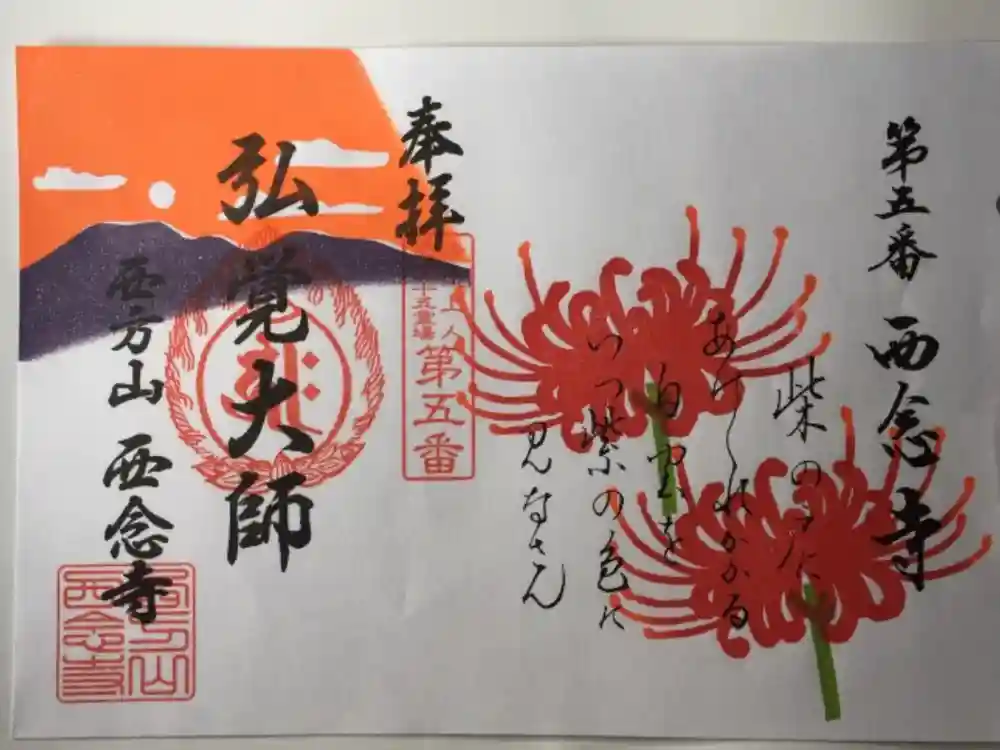 第五番 西念寺
柴の戸に
あけくれかかる
白雲を
いつ紫の色に
見なさん
奉拝
第五番
弘覚大師
西方山 西念寺
西方山
西念寺